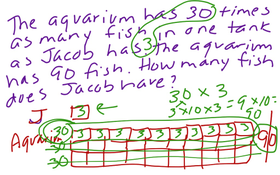 The aquarium has 30 times
as many fish in one tank
as Jacob has. The aquarium
has 90 fish. How many fish
does Jacob have?
30 × 3
3 × 10 × 3 = 9 × 10 =
90
J 3
Aquarium 30 3 3 3 3 3 3 3 3 3 3 90
30
30